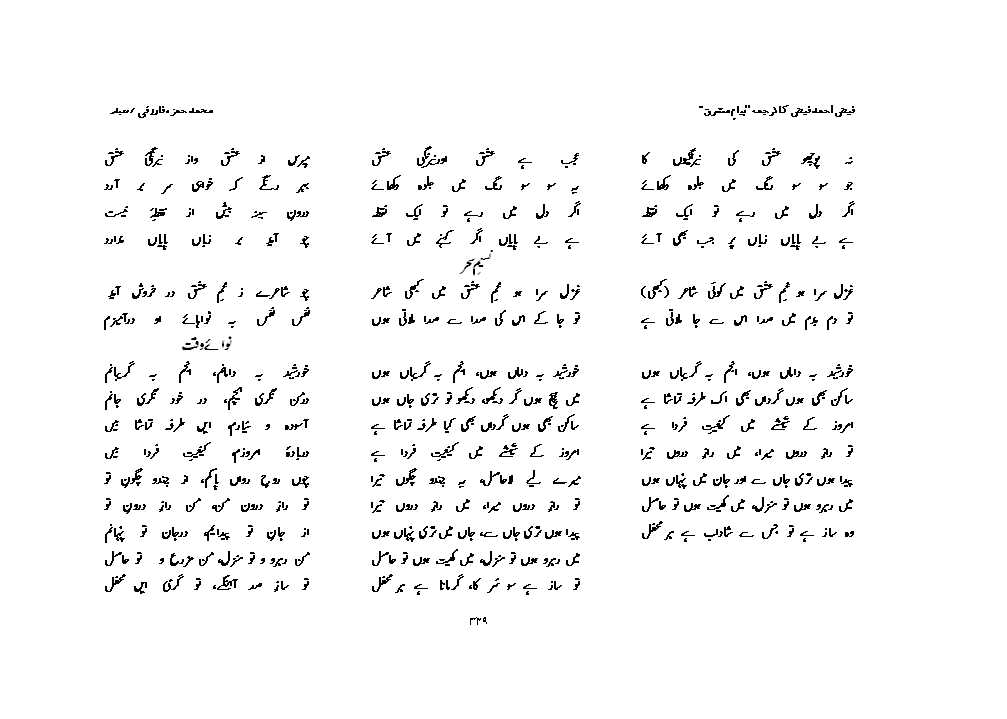 فیض احمد فیض کا ترجمہ "پیامِ مشرق"
محمد حمزہ فاروقی /
نہ پوچھو عشق کی نیرنگیوں کا
جو سو سو رنگ میں جلوہ دکھائے
اگر دل میں رہے تو ایک نقطہ
ہے بے پایاں زباں پر جب بھی آئے
عجب ہے عشق اور نیرنگیِ عشق
یہ سو سو رنگ میں جلوہ دکھائے
اگر دل میں رہے تو ایک نقطہ
ہے بے پایاں اگر کہنے میں آئے
مپرس از عشق واز نیرنگیٔ عشق
بہر رنگے کہ خواہی سر بر آرد
درونِ سینہ بیش از نقطۂ نیست
چو آید بر زباں پایاں ندارد
نسیمِ سحر
غزل سرا ہو غمِ عشق میں کوئی شاعر (کبھی)
تو دم بدم میں صدا اس سے جا ملاتی ہے
غزل سرا ہو غمِ عشق میں کبھی شاعر
تو جا کے اس کی صدا سے صدا ملاتی ہوں
چو شاعرے ز غمِ عشق در خروش آید
نفس نفس بہ نواہائے او درآمیزم
نوائے وقت
خورشید بہ داماں ہوں، انجم بہ گریباں ہوں
ساکن بھی ہوں گرداں بھی اک طرفہ تماشا ہے
امروز کے شیشے میں کیفیتِ فردا ہے
تو رازِ دروں میرا، میں رازِ دروں تیرا
پیدا ہوں تری جاں سے اور جان میں پنہاں ہوں
میں رہرو ہوں تو منزل، میں کھیت ہوں تو حاصل
وہ ساز ہے تو جس سے شاداب ہے ہر محفل
خورشید بہ داماں ہوں، انجم بہ گریباں ہوں
میں ہیچ ہوں گر دیکھو، دیکھو تو تری جاں ہوں
ساکن بھی ہوں گرداں بھی کیا طرفہ تماشا ہے
امروز کے شیشے میں کیفیتِ فردا ہے
میرے لیے لاحاصل، یہ چندو چگوں تیرا
تو رازِ دروں میرا، میں رازِ دروں تیرا
پیدا ہوں تری جاں سے، جاں میں تری پنہاں ہوں
میں رہرو ہوں تو منزل، میں کھیت ہوں تو حاصل
تو ساز ہے سو سُر کا، گرماتا ہے ہر محفل
خورشید بہ دامانم، انجم بہ گریبانم
درمن نگری ہیچم، در خود نگری جانم
آسودہ و سیّارم، ایں طرفہ تماشا بیں
دربادۂ امروزم کیفیتِ فردا بیں
چوں روحِ رواں پاکم، از چندو چگونِ تو
تو رازِ درونِ من، من رازِ درونِ تو
از جانِ تو پیدایم، درجانِ تو پنہانم
من رہرو و تو منزل، من مزرع و تو حاصل
تو سازِ صد آہنگے، تو گرمیٔ ایں محفل
۳۳۹